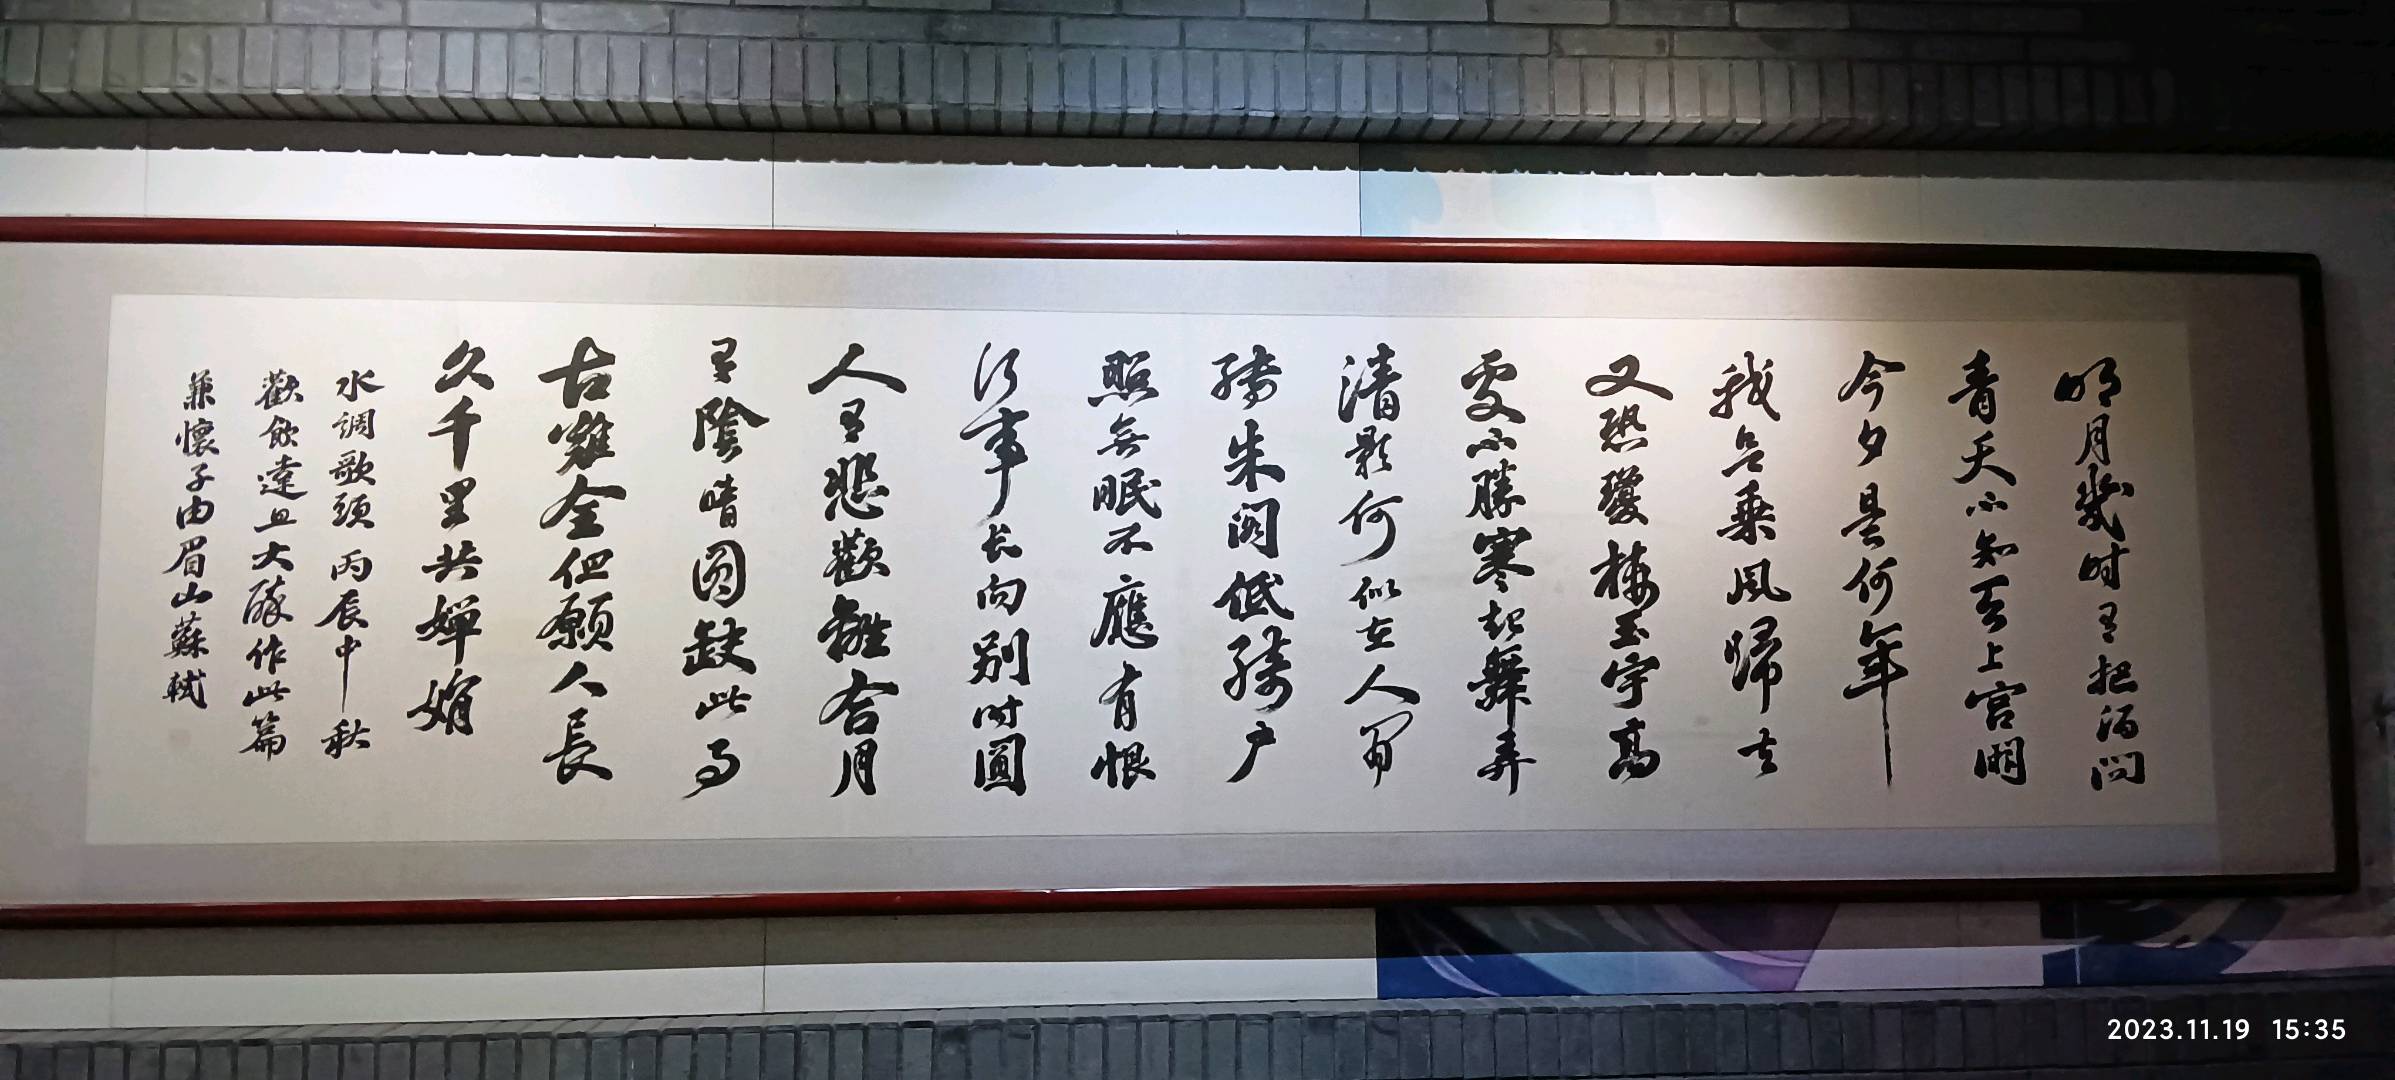 明月幾时有把酒问
青天不知天上宫阙
今夕是何年
我欲乘风歸去
又恐瓊樓玉宇高
處不勝寒起舞弄
清影何似在人间
轉朱阁低绮户
照無眠不應有恨
何事长向别时圓
人有悲歡離合月
有陰晴圆缺此事
古難全但願人長
久千里共嬋娟
水調歌頭 丙辰中秋
歡飲達旦大醉作此篇
兼懷子由眉山蘇軾
2023.11.19 15:35